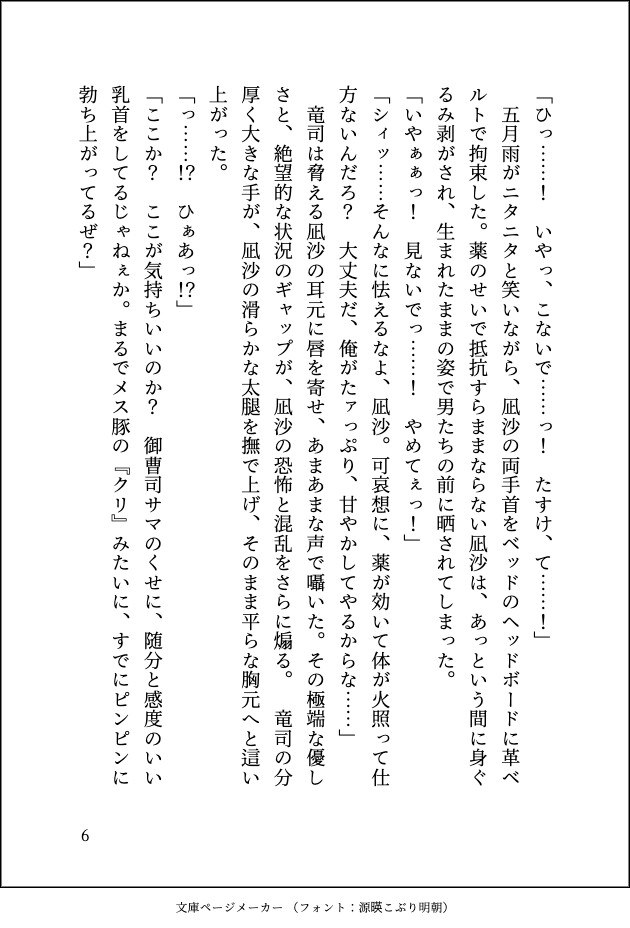 「ひっ……！　いやっ、こないで……っ！　たすけ、て……！」
　五月雨がニタニタと笑いながら、凪沙の両手首をベッドのヘッドボードに革ベ
ルトで拘束した。薬のせいで抵抗すらままならない凪沙は、あっという間に身ぐ
るみ剥がされ、生まれたままの姿で男たちの前に晒されてしまった。
「いやぁぁっ！　見ないでっ……！　やめてぇっ！」
「シィッ……そんなに怯えるなよ、凪沙。可哀想に、薬が効いて体が火照って仕
方ないんだろ？　大丈夫だ、俺がたァっぷり、甘やかしてやるからな……」
　竜司は脅える凪沙の耳元に唇を寄せ、あまあまな声で囁いた。その極端な優し
さと、絶望的な状況のギャップが、凪沙の恐怖と混乱をさらに煽る。　竜司の分
厚く大きな手が、凪沙の滑らかな太腿を撫で上げ、そのまま平らな胸元へと這い
上がった。
「っ……!?　ひぁあっ!?」
「ここか？　ここが気持ちいいのか？　御曹司サマのくせに、随分と感度のいい
乳首をしてるじゃねぇか。まるでメス豚の『クリ』みたいに、すでにピンピンに
勃ち上がってるぜ？」
6
文庫ページメーカー（フォント：源暎こぶり明朝）